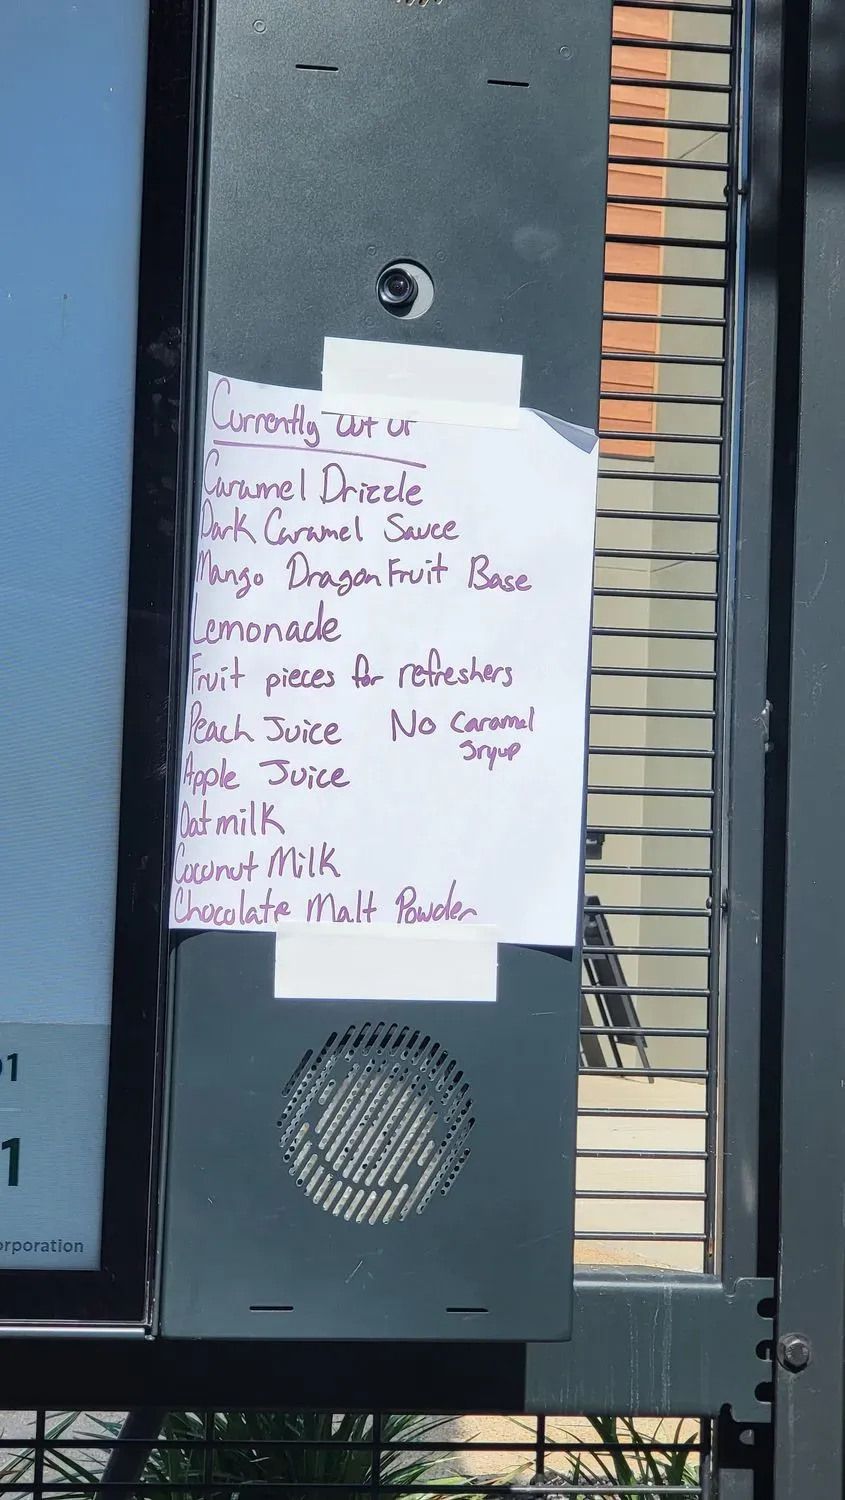 Currently out of
Caramel Drizzle
Dark Caramel Sauce
Mango Dragon Fruit Base
Lemonade
Fruit pieces for refreshers
Peach Juice
No Caramel
Sryup
Apple Juice
Oatmilk
Coconut Milk
Chocolate Malt Powder
1
1
orporation